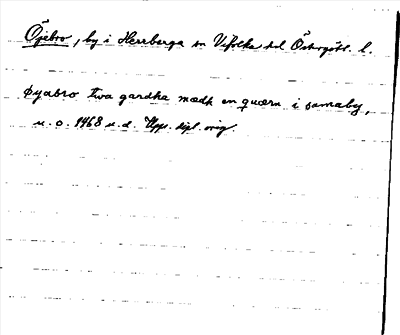 Öjebro, by i Herrberga sn Vifolka hd Östergötl. l.
øyabro twa gardha mædh en quærn i samaby,
u. o. 1468 u. d. Upps. dipl. orig.